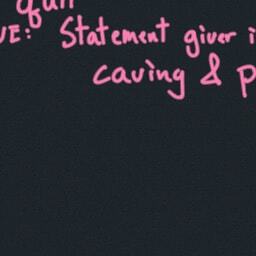 Statement giver i
caving & p